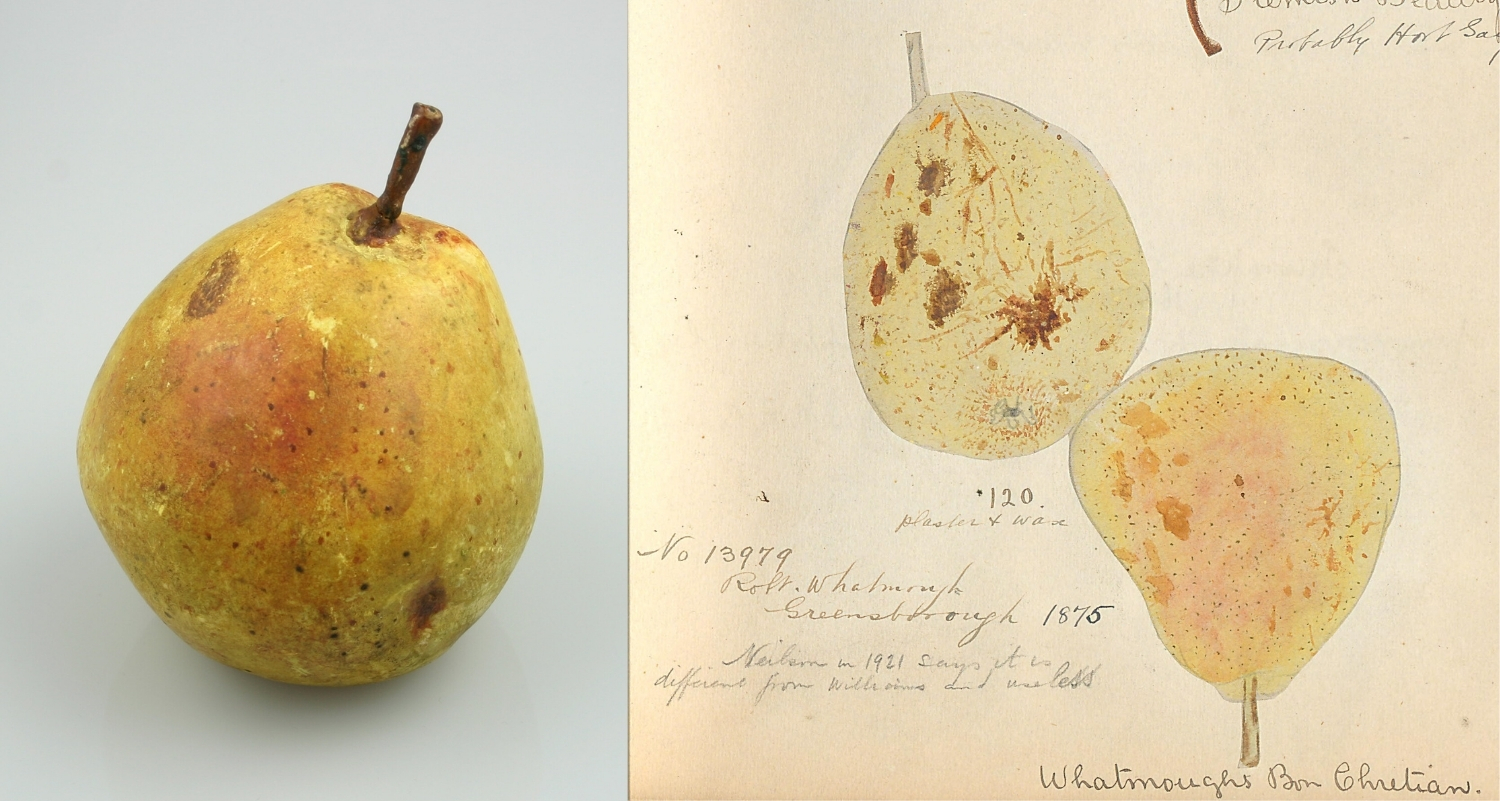 Probably Hort Ga
120.
plaster & wax
No 13979
Robt. Whatmough
Greensborough 1875
Neilson in 1921 says it is
different from Williams and useless
Whatmoughs Bon Chretian.